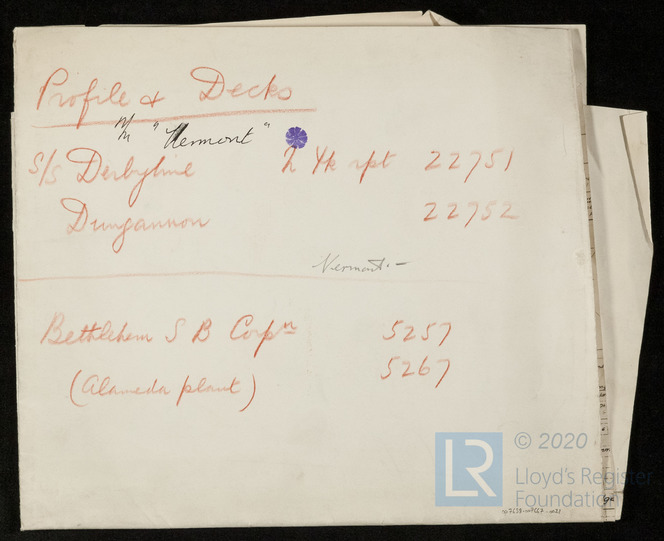 Profile & Decks
M/M "Vermont"
S/S Derbyline N Yk rpt 22751
Dungannon 22752
Vermont.-
Bethlehem S B Corpn 5257
5267
(Alameda plant)
LR © 2020
Lloyd's Register
Foundation